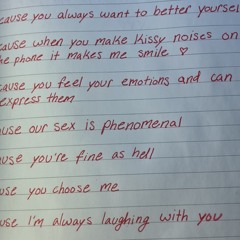 cause you always want to better yoursel
cause when you make kissy noises on
he phone it makes me smile ♡
cause you feel your emotions and can
express them
use our sex is phenomenal
use you're fine as hell
use you choose me
use I'm always laughing with you